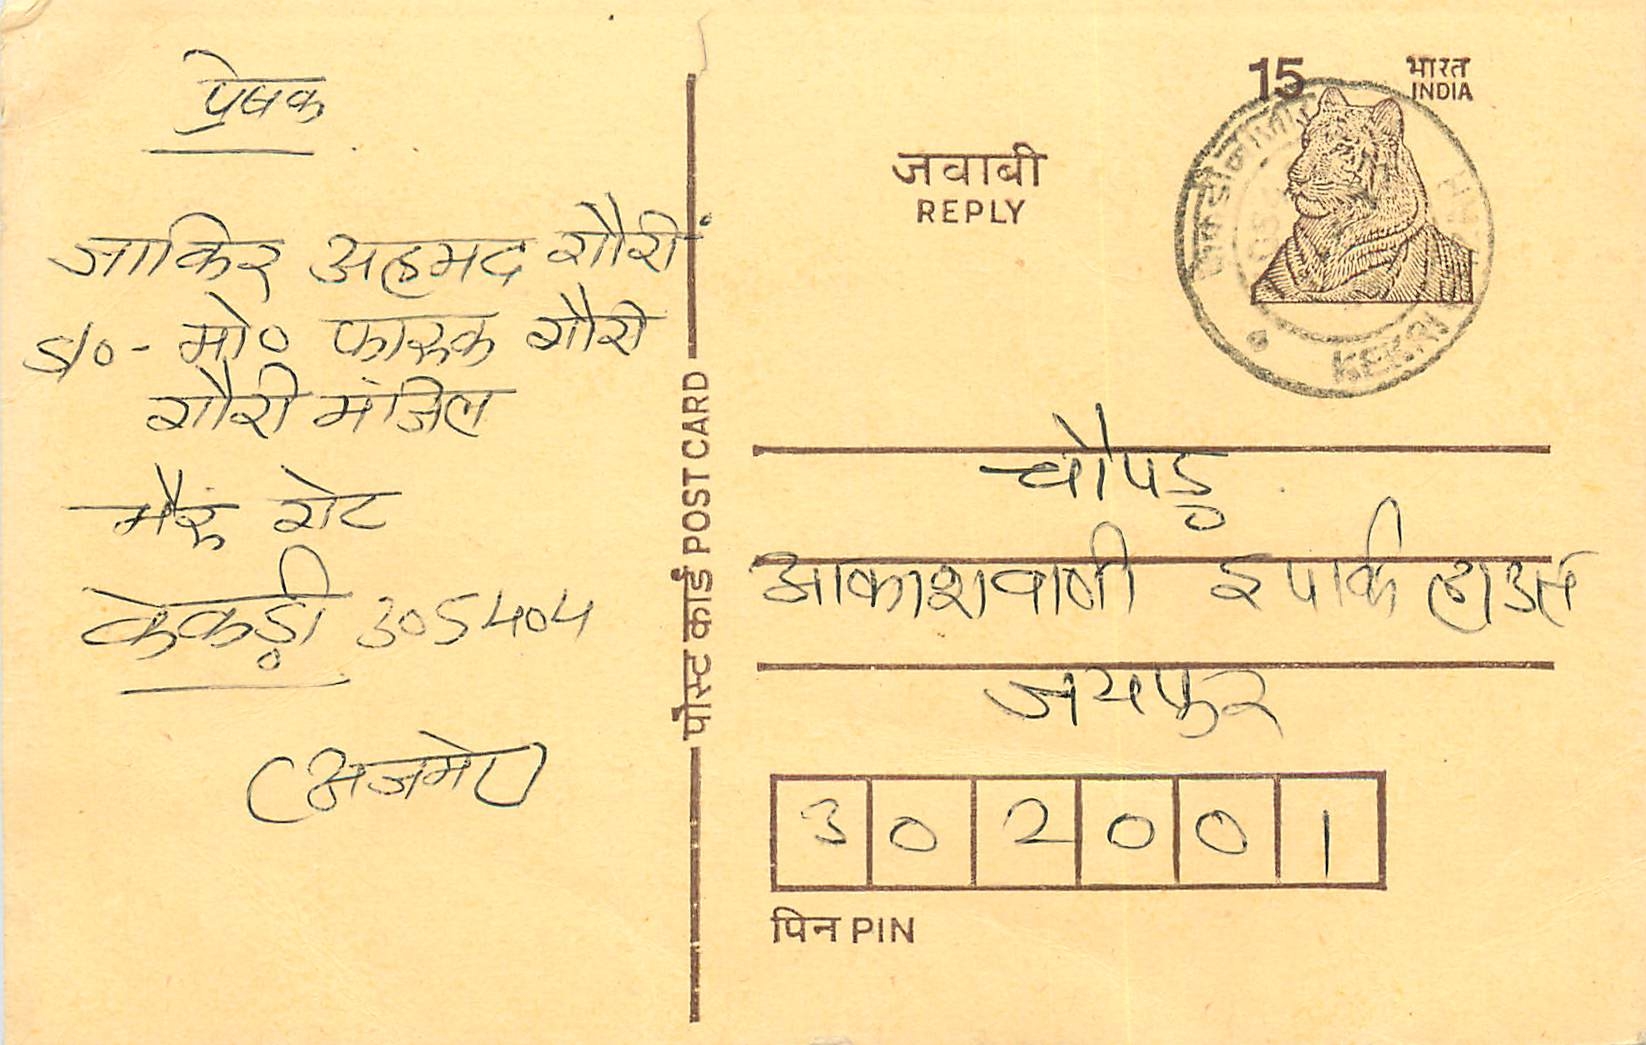 प्रेषक
जाकिर अहमद गौरी
S/o- मो० फारुक गौरी
गौरी मंजिल
भैरु गेट
केकड़ी 305404
(अजमेर)
पोस्ट कार्ड POST CARD
15
भारत
INDIA
जवाबी
REPLY
KEKRI
चौपड़
आकाशवाणी इ पार्क हाउस
जयपुर
302001
पिन PIN